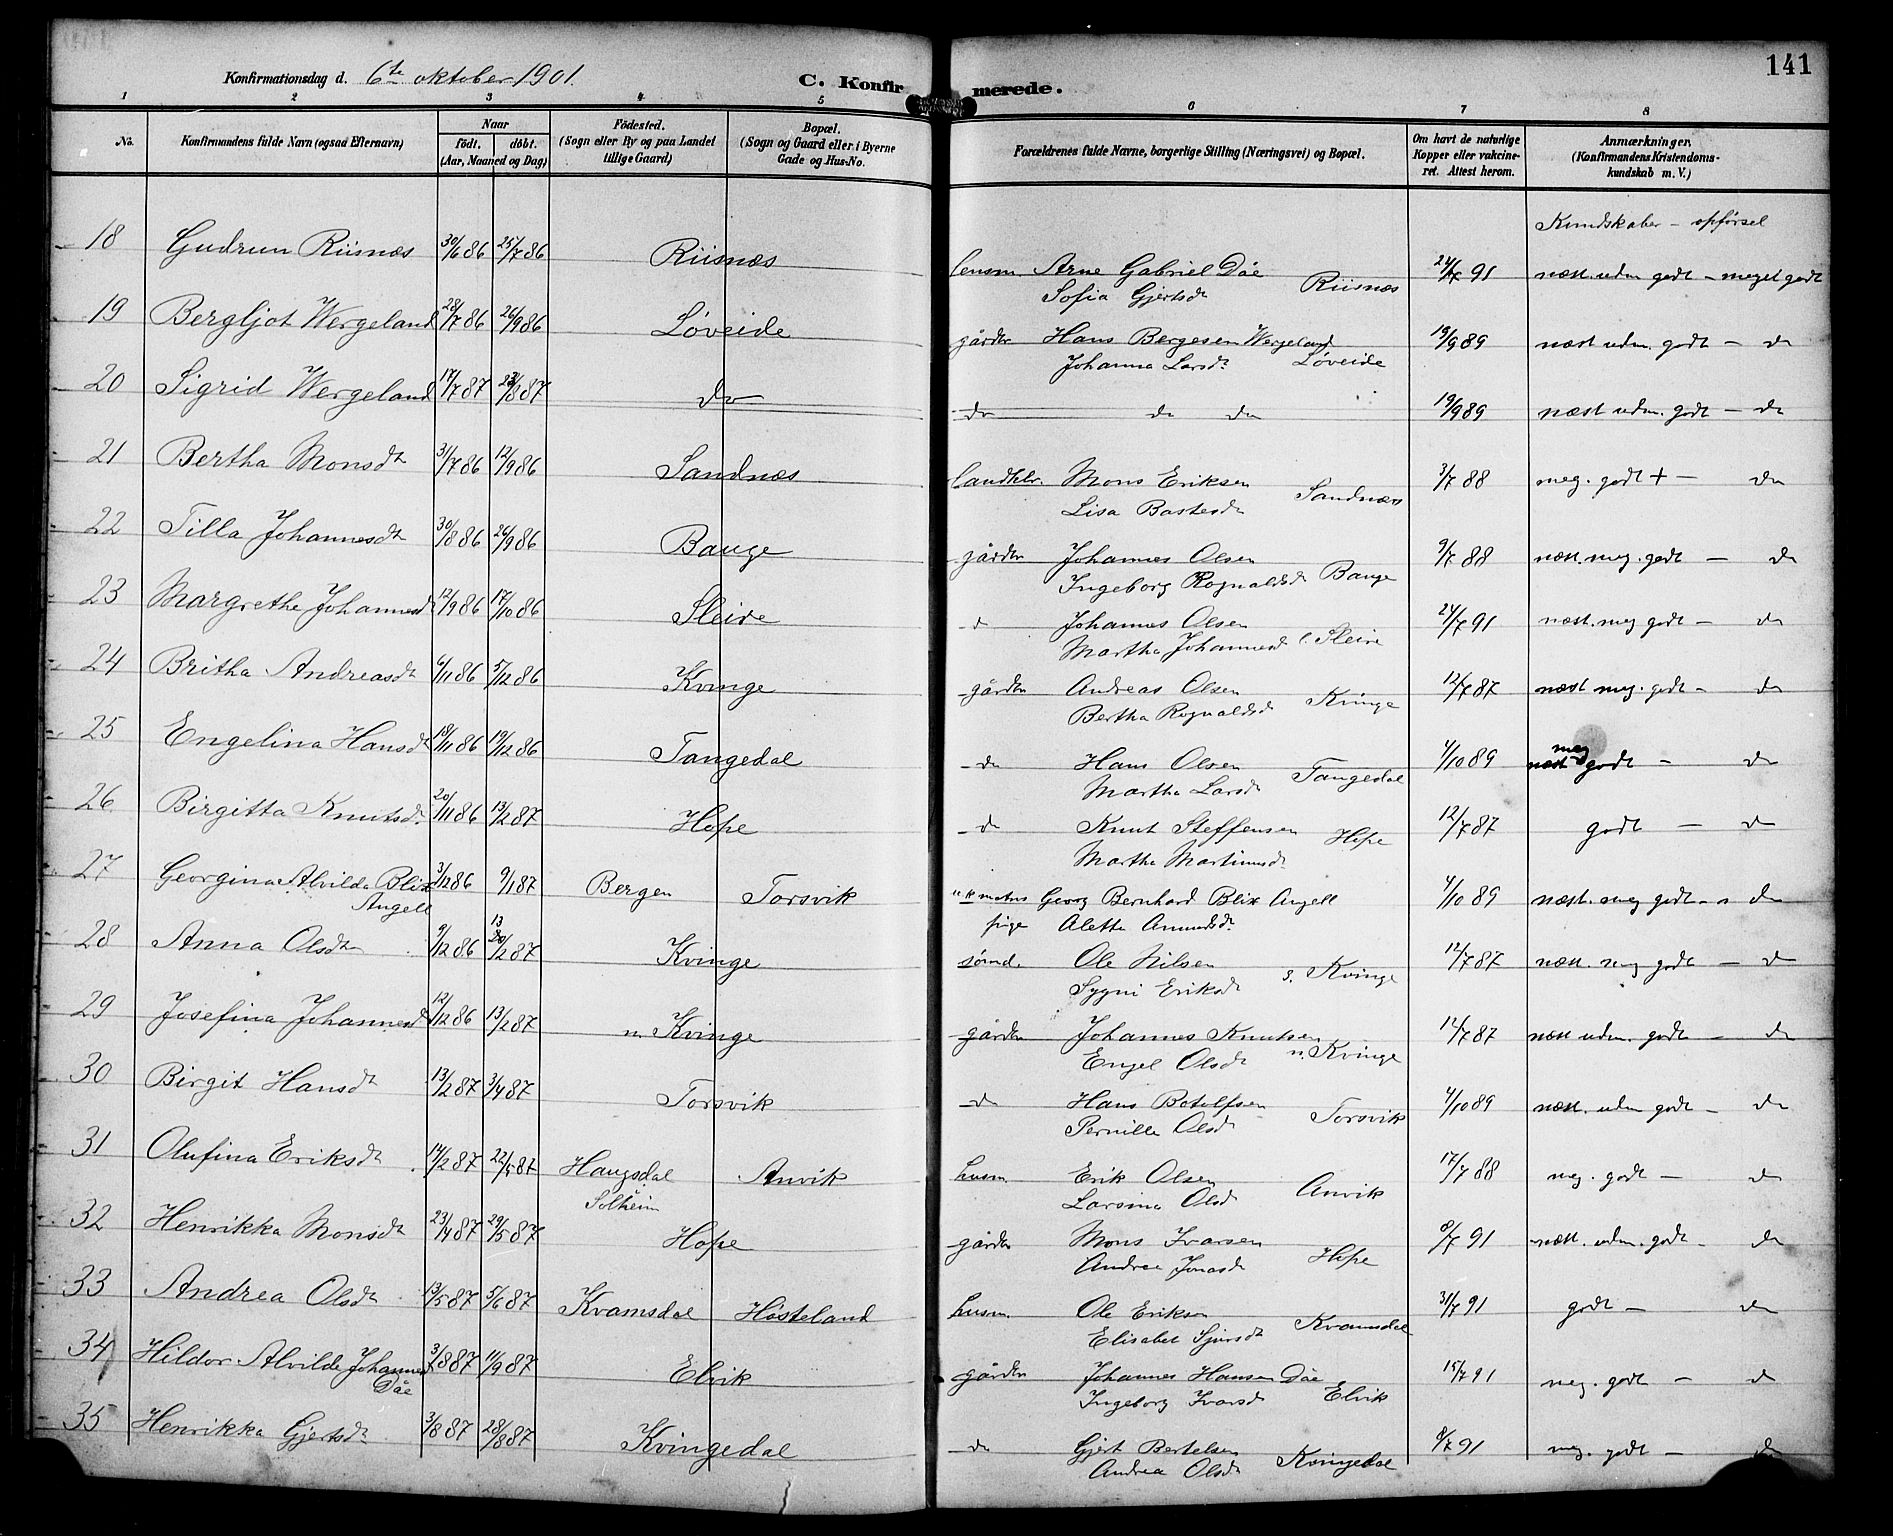 141
Konfirmationsdag d. 6te oktober 1901.
C. Konfirmerede.
1 2 3 4 5 6 7 8
No.
Konfirmandens fulde Navn (ogsaa Efternavn)
Naar
født. døbt.
(Aar, Maaned og Dag)
Fødested.
(Sogn eller By og paa Landet
tillige Gaard)
Bopæl.
(Sogn og Gaard eller i Byerne
Gade og Hus-No.
Forældrenes fulde Navne, borgerlige Stilling (Næringsvei) og Bopæl.
Om havt de naturlige
Kopper eller vakcine-
ret. Attest herom.
Anmærkninger.
(Konfirmandens Kristendoms-
kundskab m. V.)
Kundskaber - opførsel
18 Gudrun Riisnæs 30/6 86 25/7 86 Riisnæs lensm Arne Gabriel Dåe 24/7 91 næst. udm godt - meget godt
Sofia Gjertsdt Riisnæs
19 Bergljot Wergeland 28/7 86 26/9 86 Løveide gårdbr Hans Bergesen Wergeland 19/9 89 næst udm. godt - do
Johanna Larsdt Løveide
20 Sigrid Wergeland 17/7 87 28/8 87 do do do do 19/9 89 næst udm. godt - do
21 Bertha Monsdt 31/7 86 12/9 86 Sandnæs landhdlr. Mons Eriksen 3/7 88 meg. godt + - do
Lisa Bastesdt Sandnæs
22 Tilla Johannesdt 30/8 86 26/9 86 Bauge gårdbr Johannes Olsen 9/7 88 næst. meg. godt - do
Ingeborg Rognaldsdt Bauge
23 Margrethe Johannesdt 12/9 86 17/10 86 Sleire d Johannes Olsen 24/7 91 næst. meg godt - do
Martha Johannesdt l. Sleire
24 Britha Andreasdt 6/11 86 5/12 86 Kvinge gårdbr Andreas Olsen 12/7 87 næst meg. godt - do
Bertha Rognaldsdt Kvinge
25 Engelina Hansdt 18/11 86 19/12 86 Tangedal do Hans Olsen 4/10 89 meg godt - do
Martha Larsdt Tangedal
26 Birgitta Knutsdt. 20/11 86 13/2 87 Hope d Knut Steffensen 12/7 87 godt - do
Martha Martinusdt Hope
27 Georgina Alvilda Blix 3/12 86 9/1 87 Bergen Torsvik matros Georg Bernhard Blix Angell 4/10 89 næst. meg godt - do
Angell pige Aletta Amundsdt.
28 Anna Olsdt 9/12 86 13/2 87 Kvinge Ole Nilsen 12/7 87 næst. meg godt - do
Sygni Eriksdt s. Kvinge
29 Josefina Johannesdt 12/12 86 13/2 87 n. Kvinge gårdbr Johannes Knutsen 12/7 87 næst udm. godt - do
Engel Olsdt n. Kvinge
30 Birgit Hansdt 13/2 87 3/4 87 Torsvik do Hans Botolfsen 4/10 89 næst. udm godt - do
Pernille Olsdt Torsvik
31 Olufina Eriksdt 14/2 87 22/5 87 Haugsdal Anvik husm Erik Olsen 17/7 88 meg. godt - do
Solheim Larsina Olsdt Anvik
32 Henrikka Monsdt 23/4 87 29/5 87 Hope gårdbr Mons Ivarsen 8/7 91 næst. udm. godt - do
Andrea Jonasdt Hope
33 Andrea Olsdt 13/5 87 5/6 87 Kvamsdal Høsteland husm. Ole Eriksen 31/7 91 godt - do
Elisabet Sjursdt Kvamsdal
34 Hildor Alvilde Johannesdt 3/8 87 11/9 87 Elvik gårdbr Johannes Hansen Dåe 15/7 91 meg. godt - d
Dåe Ingeborg Ivarsdt Elvik
35 Henrikka Gjertsdt 3/8 87 28/8 87 Kvingedal do Gjert Bertelsen 8/7 91 meg. godt - do
Andrea Olsdt Kvingedal